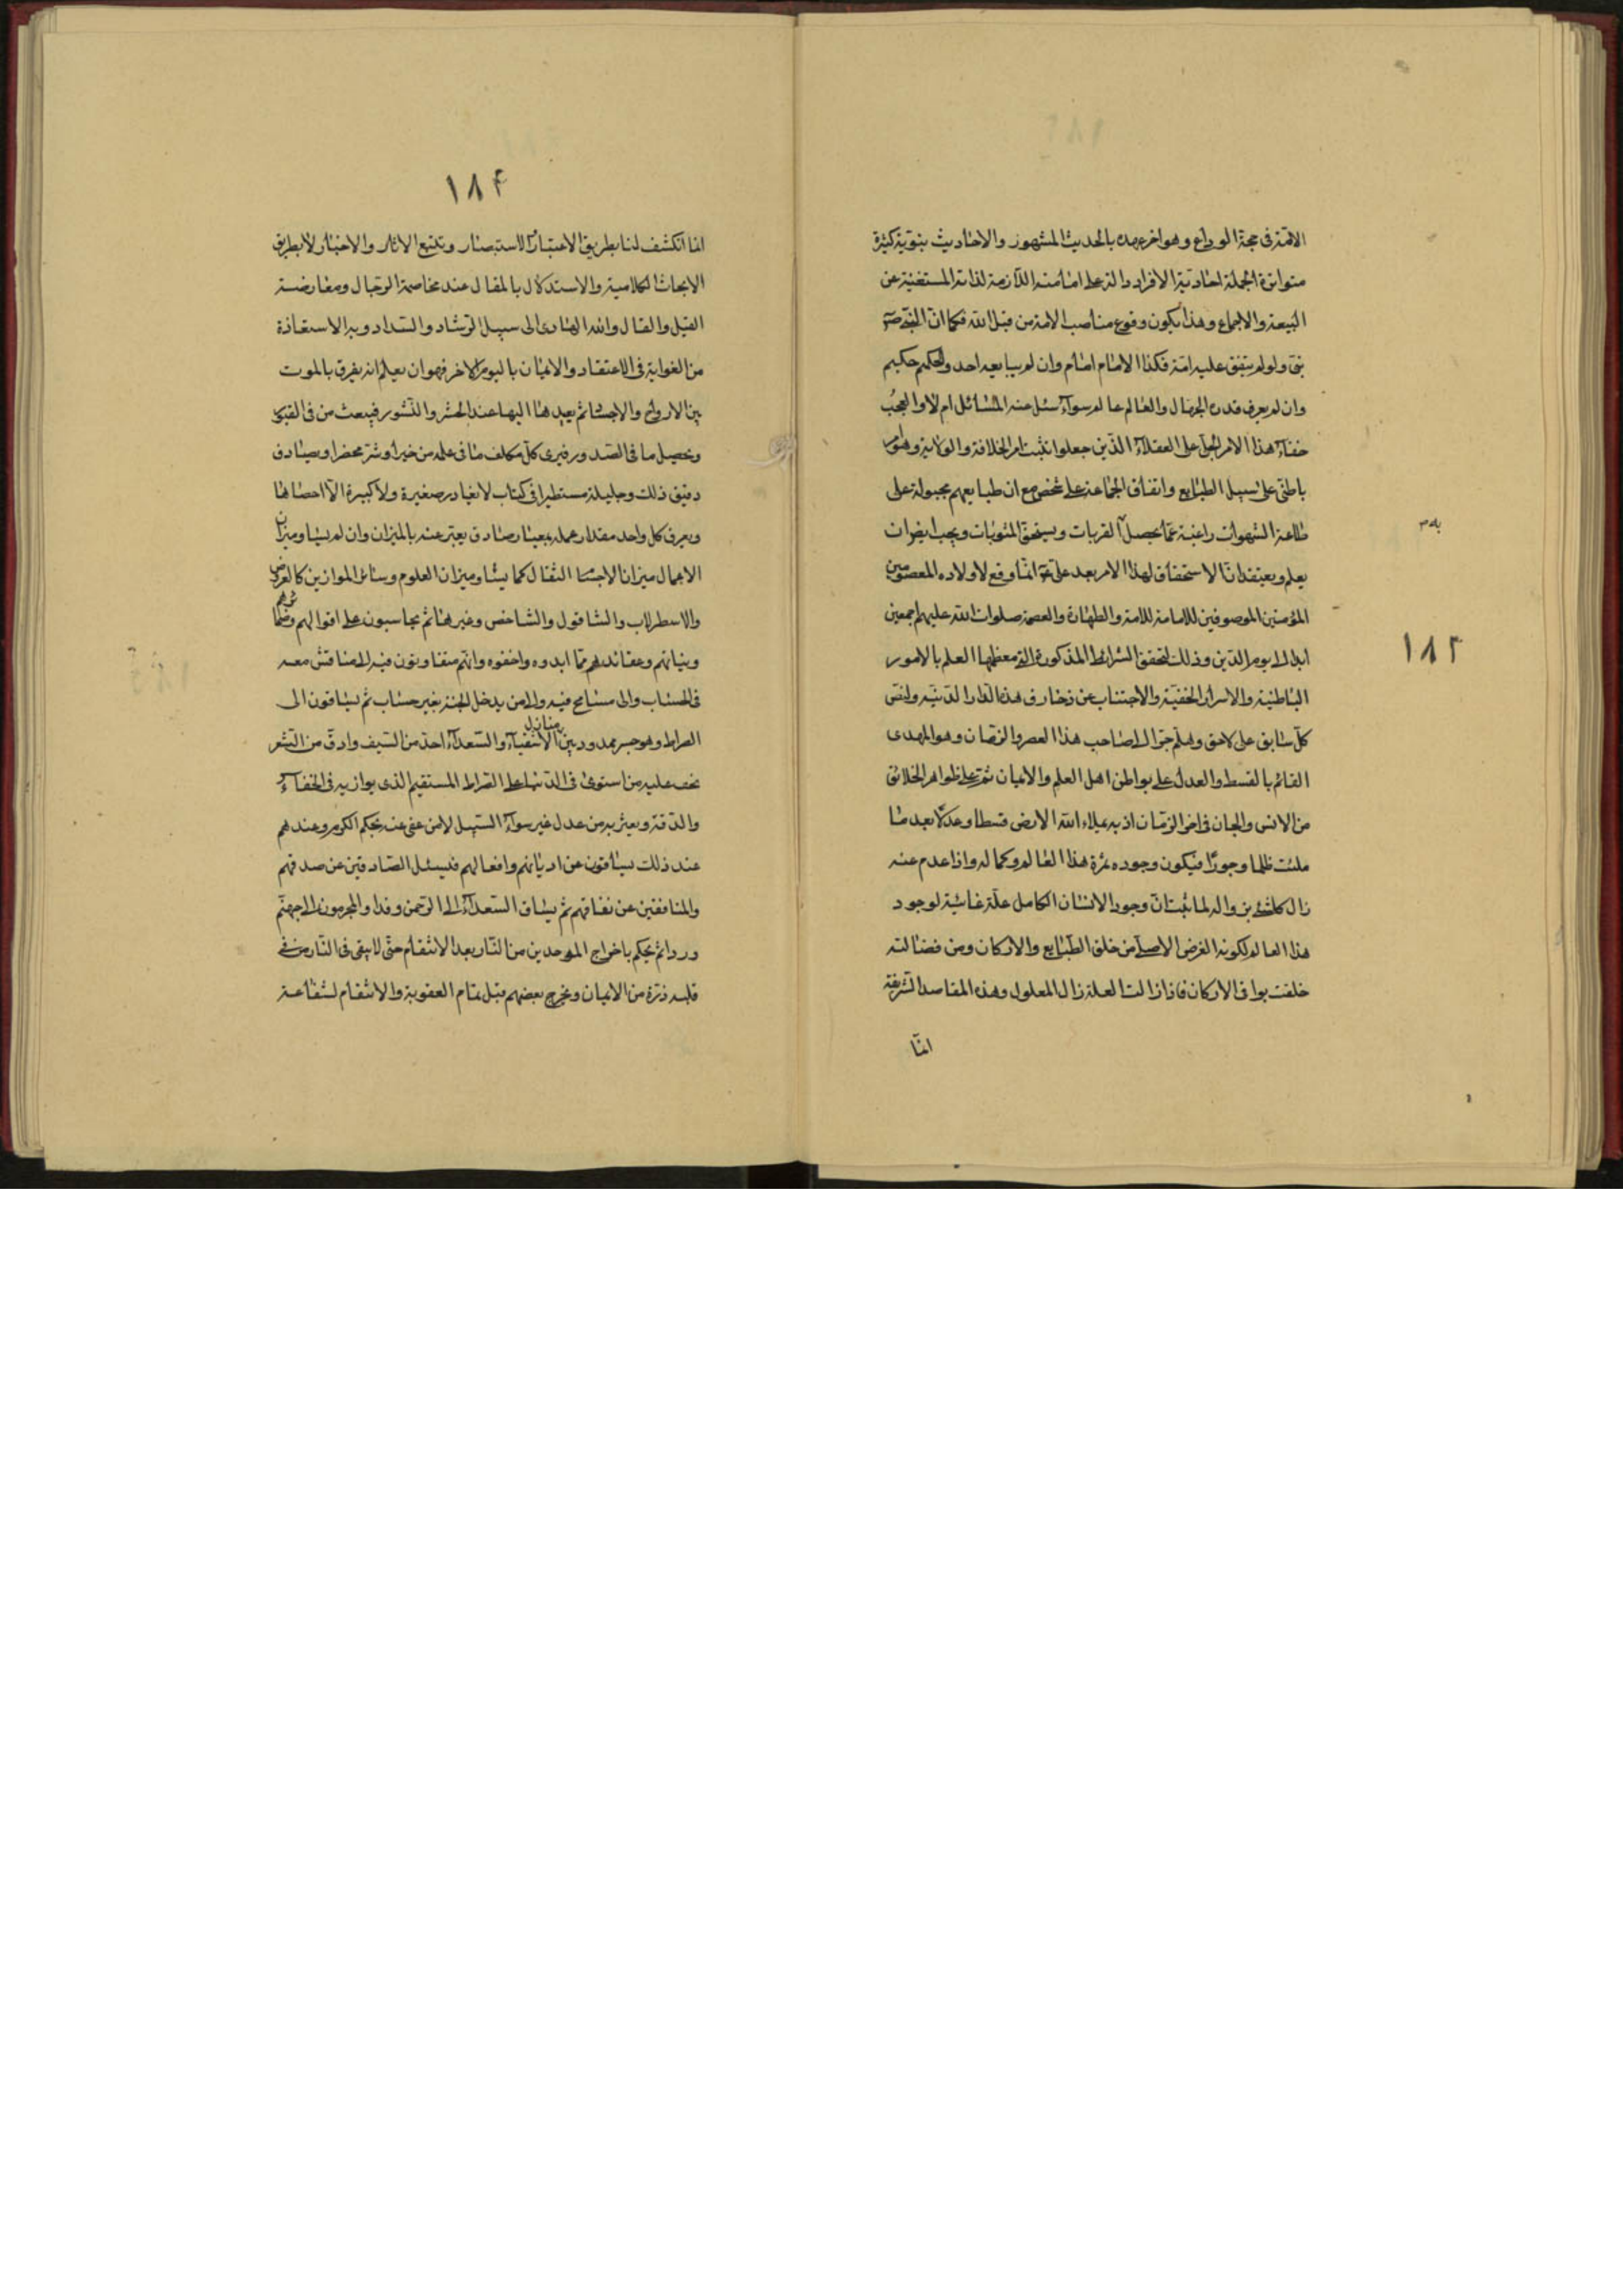 الامة فى حجة الوداع وهو اخر عهده بالحديث المشهور والاحاديث بنوية كثيرة
متواترة الجملة احادية الافراد دالة على امامته اللازمة لذاته المستغنية عن
البيعة والاجماع وهذا يكون وقوع مناصب الامة من قبل الله فكما ان النبى ص
نبى ولو لم يتفق عليه امة فكذا الامام امام وان لم يبايعه احد والحكيم حكيم
وان لم يعرف قدره الجهال والعالم عالم سواء سئل عنه المسائل ام لا والعجب
خفاء هذا الامر الجلى على العقلاء الذين جعلوا تثبت امر الخلافة والولاية وهو امر
باطنى على سبيل الطبايع واتفاق الجماعة على شخص مع ان طبايعهم مجبولة على
طاعة الشهوات راغبة عما يحصل القربات ويستحق المثوبات ويجب ايضا ان
يعلم ويعتقد ان الاستحقاق لهذا الامر بعد على ع انما وقع لاولاده المعصومين
المؤمنين الموصوفين للامامة للامة والطهارة والعصمة صلوات الله عليهم اجمعين
ابدا الى يوم الدين وذلك لتحقق الشرايط المذكورة التى معظمها العلم بالامور
الباطنية والاسرار الخفية والاجتناب عن زخارف هذه الدار الدنية ولنص
كل سابق على لاحق وهلم جرا الى صاحب هذا العصر والزمان وهو المهدى
القائم بالقسط والعدل على بواطن اهل العلم والايمان ثم على ظواهر الخلائق
من الانس والجان فى اخر الزمان اذ به يملاء الله الارض قسطا وعدلا بعد ما
ملئت ظلما وجورا فيكون وجوده ثمرة هذا العالم وكماله واذا عدم عنه
زال كل شئ بزواله لما ثبت ان وجود الانسان الكامل علة غائية لوجود
هذا العالم لكونه الغرض الاصلى من خلق الطبايع والاركان ومن فضالته
خلقت بواقى الاركان فاذا زالت العلة زال المعلول وهذه المقاصد الشريفة
انما
١٨٣
١٨۴
انما انكشف لنا بطريق الاعتبار والاستبصار وتتبع الاثار والاخبار لا بطريق
الابحاث الكلامية والاستدلال بالمقال عند مخاصمة الرجال ومعارضة
القيل والقال والله الهادى الى سبيل الرشاد والسداد وبه الاستعاذة
من الغواية فى الاعتقاد والايمان باليوم الاخر فهو ان يعلم انه يفرق بالموت
بين الارواح والاجساد ثم يعيدها اليها عند الحشر والنشور فيبعث من فى القبور
وتحصيل ما فى الصدور فيرى كل مكلف ما فى عمله من خير او شر محضرا ويصادف
دقيق ذلك وجليله مستطيرا فى كتاب لا يغادر صغيرة ولا كبيرة الا احصاها
ويعرف كل واحد مقدار عمله بمعيار صادق يعبر عنه بالميزان وان لم يساو ميزان
الاعمال ميزان الاجسام الثقال كما يساو ميزان العلوم وسائر الموازين كالعروض
والاسطرلاب والشاقول والشاخص وغيرها ثم يحاسبون على اقوالهم
ونياتهم وعقائدهم مما ابدوه واخفوه وانهم متفاوتون فيه الى مناقش معه
فى الحساب والى مسامح فيه والى من يدخل الجنة بغير حساب ثم يساقون الى
الصراط وهو جسر ممدود بين منازل الاشقياء والسعداء احد من السيف وادق من الشعر
يخف عليه من استوى فى الدنيا على الصراط المستقيم الذى يوازيه فى الخفاء
والدقة ويعثر به من عدل عن سواء السبيل الا من عفى عنه بحكم الكرم وعندهم
عند ذلك يسئلون عن اديانهم وافعالهم فيسئل الصادقين عن صدقهم
والمنافقين عن نفاقهم ثم يساق السعداء الى الرحمن وفدا والمجرمون الى جهنم
وردا ثم يحكم باخراج الموحدين من النار بعد الانتقام حتى لا يبقى فى النار من فى
قلبه ذرة من الايمان ويخرج بعضهم قبل تمام العقوبة والانتقام لشفاعة